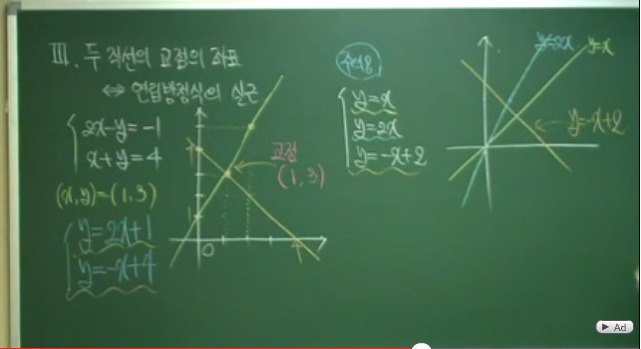 III. 두 직선의 교점의 좌표
⇔ 연립방정식의 실근
2x-y=-1
x+y=4
(x,y)=(1,3)
y=2x+1
y=-x+4
교점
(1,3)
1
O
주의용
y=x
y=2x
y=-x+2
y=2x
y=x
y=-x+2
Ad